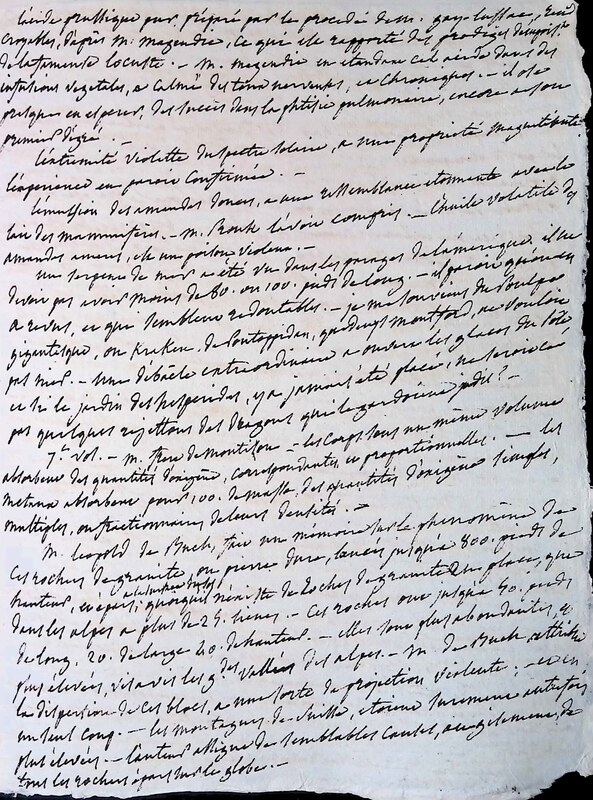 l'acide prussique pur, préparé par le procédé de m. gay-lussac,
croyables, d'après m. magendie, ce qui est rapporté des prodiges
de la fameuse locuste. - m. magendie en étendant cet acide dans des
infusions végétales, a calmé des toux nerveuses, et chroniques. - il ose
presque en espérer, des succès dans la phtisie pulmonaire, encore à son
premier dégré. -
l'extrémité violette du spectre solaire, a une propriété magnétisante
l'expérience en paroit confirmée. -
l'émulsion des amandes douces, a une ressemblance étonnante avec le
lait des mammifères. - m. l'avoit compris. - l'huile volatile des
amandes amères, est un poison violent. -
un serpent de mer a été vu dans les parages de l'amérique. il ne
devoit pas avoir moins de 80. ou 100. pieds de long. - il paroit qu'on en
a revus, et que semblent redoutables. - je me souviens du poulpe
gigantesque, ou kraken de pontoppidan, que denys montford, ne vouloit
pas nier. - une débâcle extraordinaire a ouvert les glaces du pôle,
et si le jardin des hespérides, y a jamais été placé, ne seroit ce
pas quelques rejettons des dragons qui le gardoient jadis? -
7e. vol. - m. de - les corps sous un même volume
absorbent des quantités d'oxigène, correspondantes et proportionnelles. - les
métaux absorbent pour 100. de masse, des quantités d'oxigène simples,
multiples, ou fractionnaires de leurs densités. -
m. léopold de Buch, fait un mémoire sur le phénomène de
ces roches de granite, ou pierre dure, lancés jusqu'à 800. pieds de
hauteur, et épars, quoiqu'il n'existe de roches de granite en place, que
dans les alpes à plus de 25. lieues. - Ces roches ont jusqu'à 50. pieds
de long. 20. de large 40. de hauteur. - elles sont plus abondantes, et
plus élevées, vis à vis les gdes vallées des alpes. - m. de Buch attribue
la dispersion de ces blocs, à une sorte de projection violente; - et en
un seul coup. - les montagnes de suisse, étoient surement autrefois
plus élevées. - l'auteur assigne de semblables causes, au gisement, de
tous les rochers épars sur le globe. -